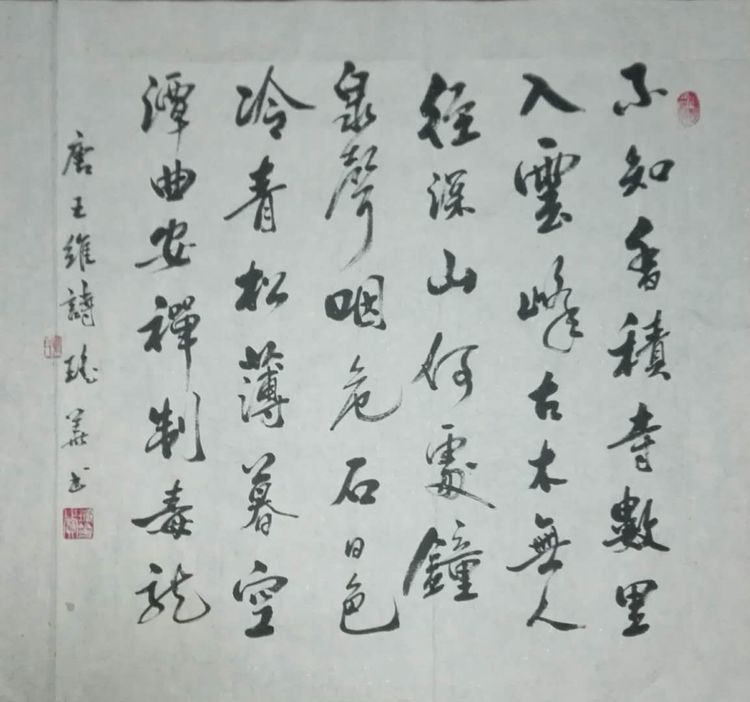 不知香積寺數里
入雲峰古木無人
徑深山何處鐘
泉聲咽危石日色
冷青松薄暮空
潭曲安禪制毒龍
唐王維詩華書